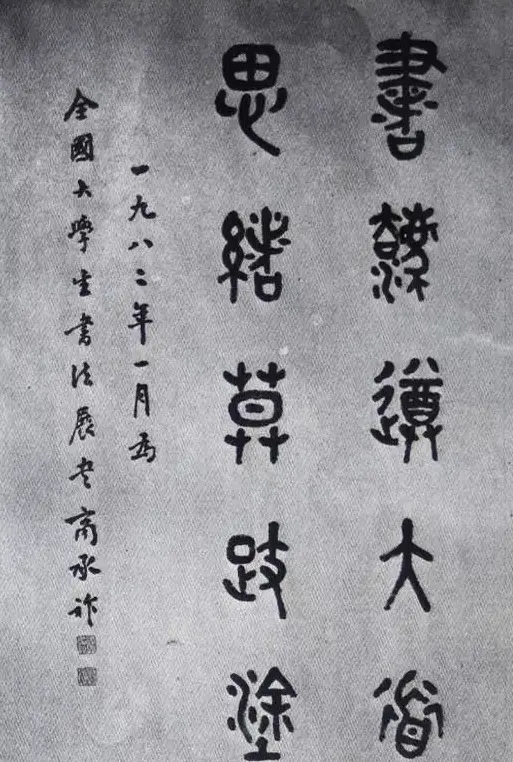 書遵大道
思緒莫跂塗
一九八二年一月為
全國大學生書法展商承祚